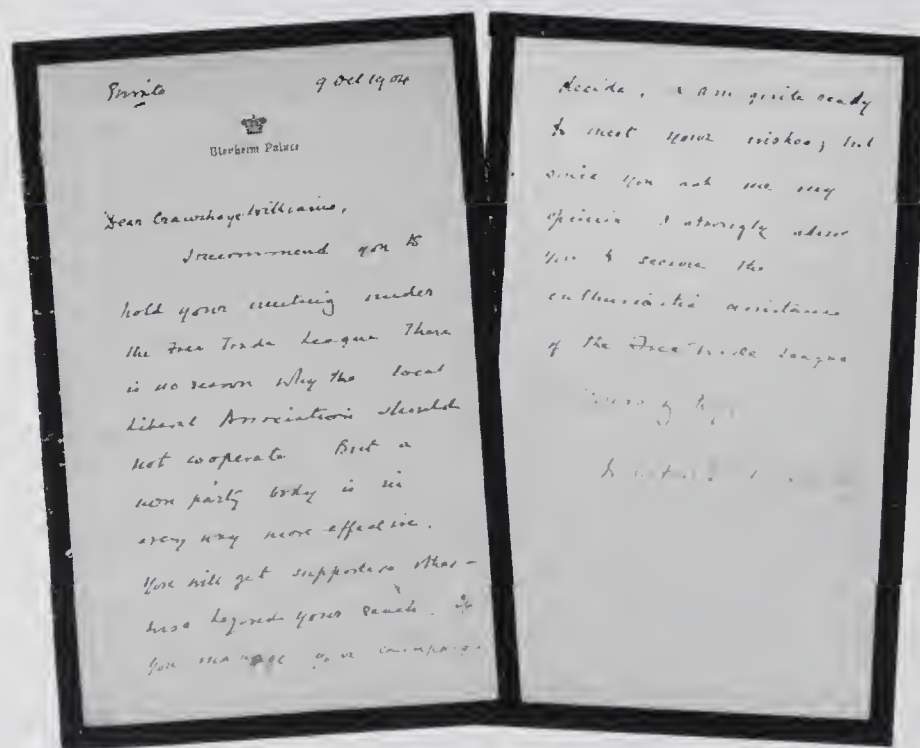 Private
9 Oct 1904
Blenheim Palace
Dear Crawshay-Williams,
I recommend you to
hold your meeting under
the Free Trade League There
is no reason why the local
Liberal Association should
not cooperate But a
non party body is in
every way more effective.
You will get supporters other-
wise beyond your reach. If
you manage your campaign
decide, I am quite ready
to meet your wishes; but
since you ask me my
opinion I strongly advise
you to secure the
enthusiastic assistance
of the Free Trade League
Yours